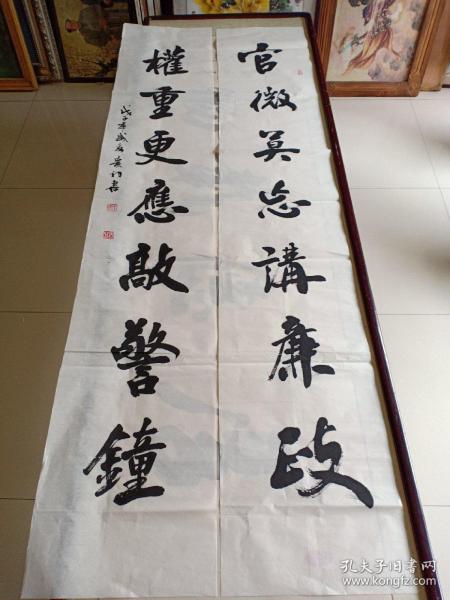 官微莫忘講廉政
權重更應敲警鐘
戊子年
書
孔夫子旧书网
www.kongfz.com